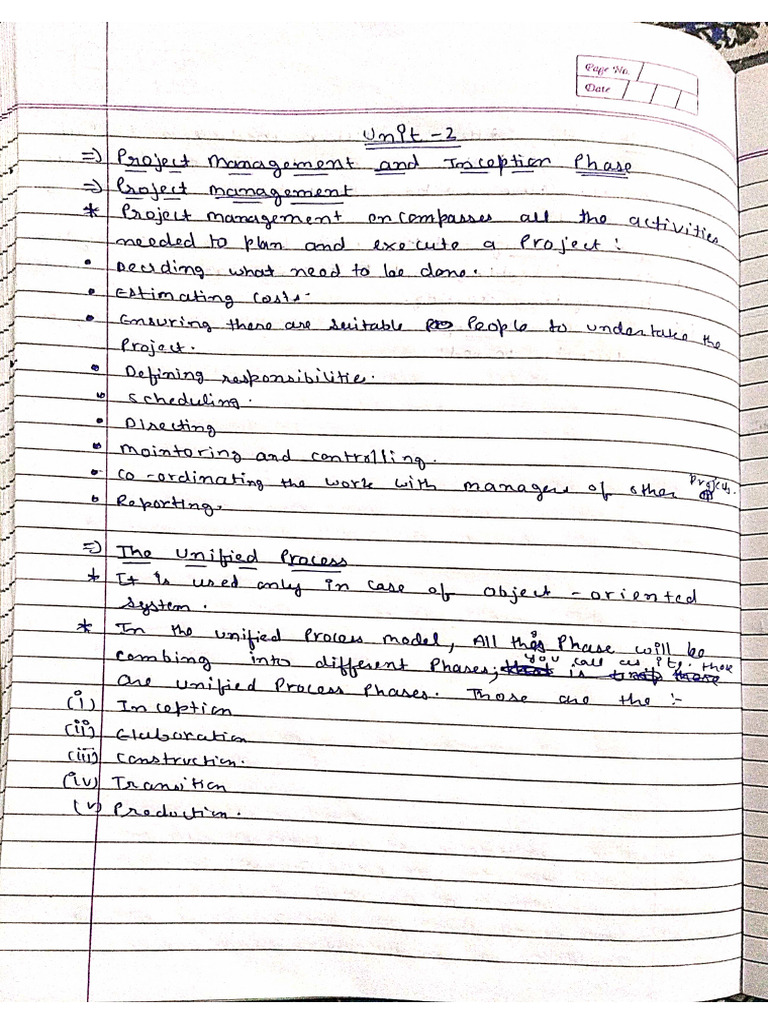 Page No.
Date
Unit - 2
=> Project management and Inception Phase
=> Project management
* Project management encompasses all the activities
needed to plan and execute a Project :
• Deciding what need to be done.
• Estimating costs.
• Ensuring there are suitable People to undertake the
Project.
• Defining responsibilities.
• Scheduling.
• Directing
• Mointoring and controlling.
• Co-ordinating the work with managers of other Projects.
• Reporting.
=> The Unified Process
* It is used only in case of object - oriented
system.
* In the unified Process model, All this Phase will be
combing into different Phases, you call as it is these
are unified Process Phases. Those are the :-
(i) Inception
(ii) Elaboration
(iii) Construction.
(iv) Transition
(v) Production.